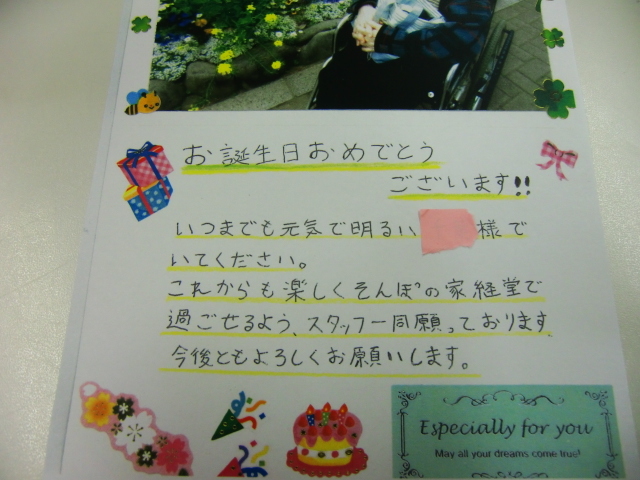 お誕生日おめでとう
ございます!!
いつまでも元気で明るい 様で
いてください。
これからも楽しくそんぽの家経堂で
過ごせるよう、スタッフ一同願っております
今後ともよろしくお願いします。
Especially for you
May all your dreams come true!